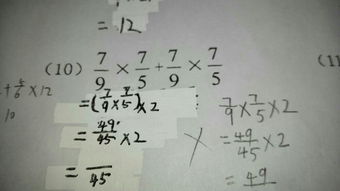 = 12
(10) 7/9 × 7/5 + 7/9 × 7/5
(11
× 12
10
= (7/9 × 7/5) × 2
= 49/45 × 2
= /45
7/9 × 7/5 × 2
= 49/45 × 2
= 49